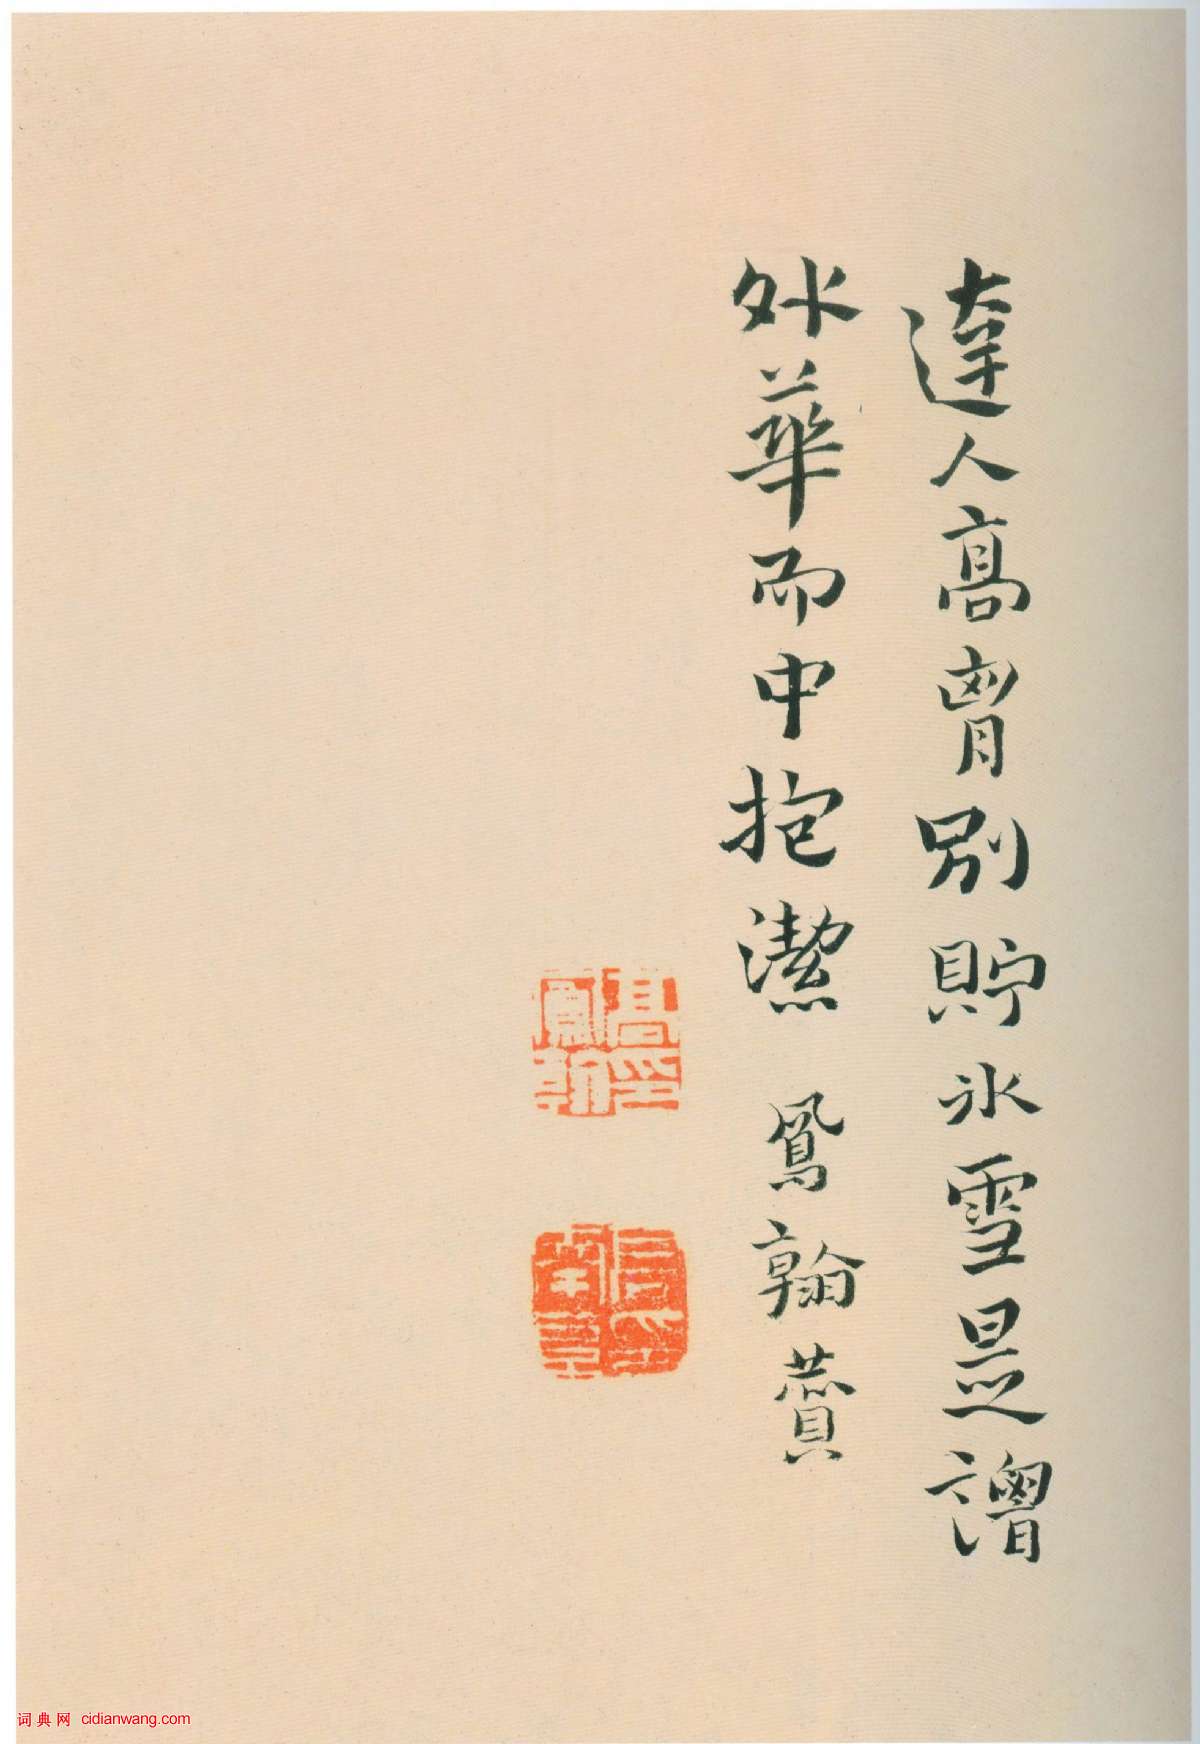 達人高胷別貯冰雪是謂
外華而中抱潔 鳳翰贊
高鳳翰印
词典网 cidianwang.com